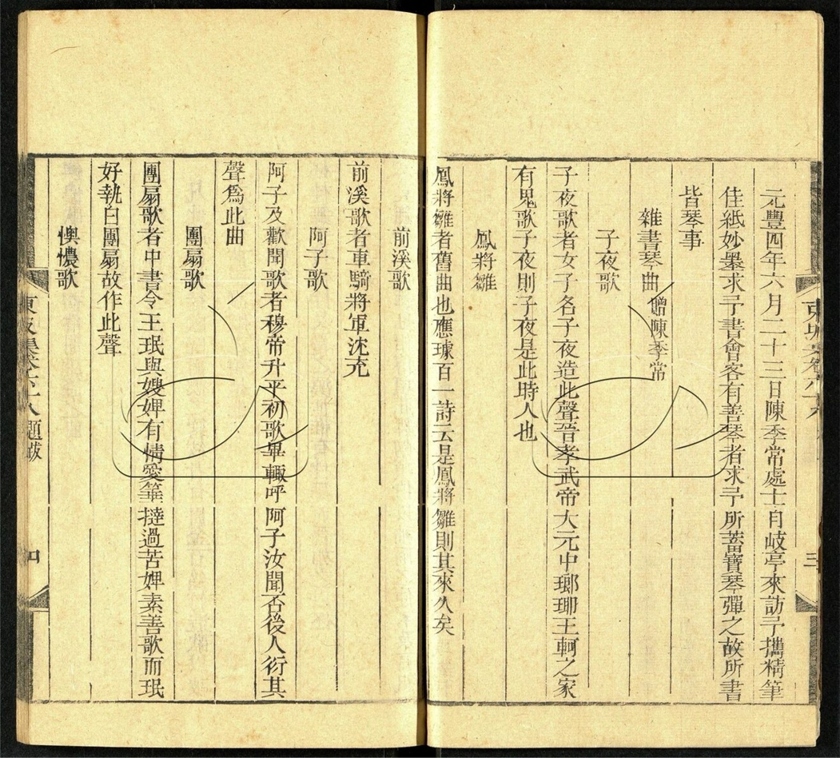 元豐四年六月二十三日陳季常處士自岐亭來訪予攜精筆
佳紙妙墨求予書會客有善琴者求予所蓄寶琴彈之故所書
皆琴事
雜書琴曲贈陳季常
子夜歌
子夜歌者女子名子夜造此聲晉孝武帝大元中瑯琊王軻之家
有鬼歌子夜則子夜是此時人也
鳳將雛
鳳將雛者舊曲也應璩百一詩云是鳳將雛則其來久矣
三
前溪歌
前溪歌者車騎將軍沈充
阿子歌
阿子及歡聞歌者穆帝升平初歌畢輒呼阿子汝聞否後人衍其
聲爲此曲
團扇歌
團扇歌者中書令王珉與嫂婢有情愛箠撻過苦婢素善歌而珉
好執白團扇故作此聲
懊憹歌
題跋
四